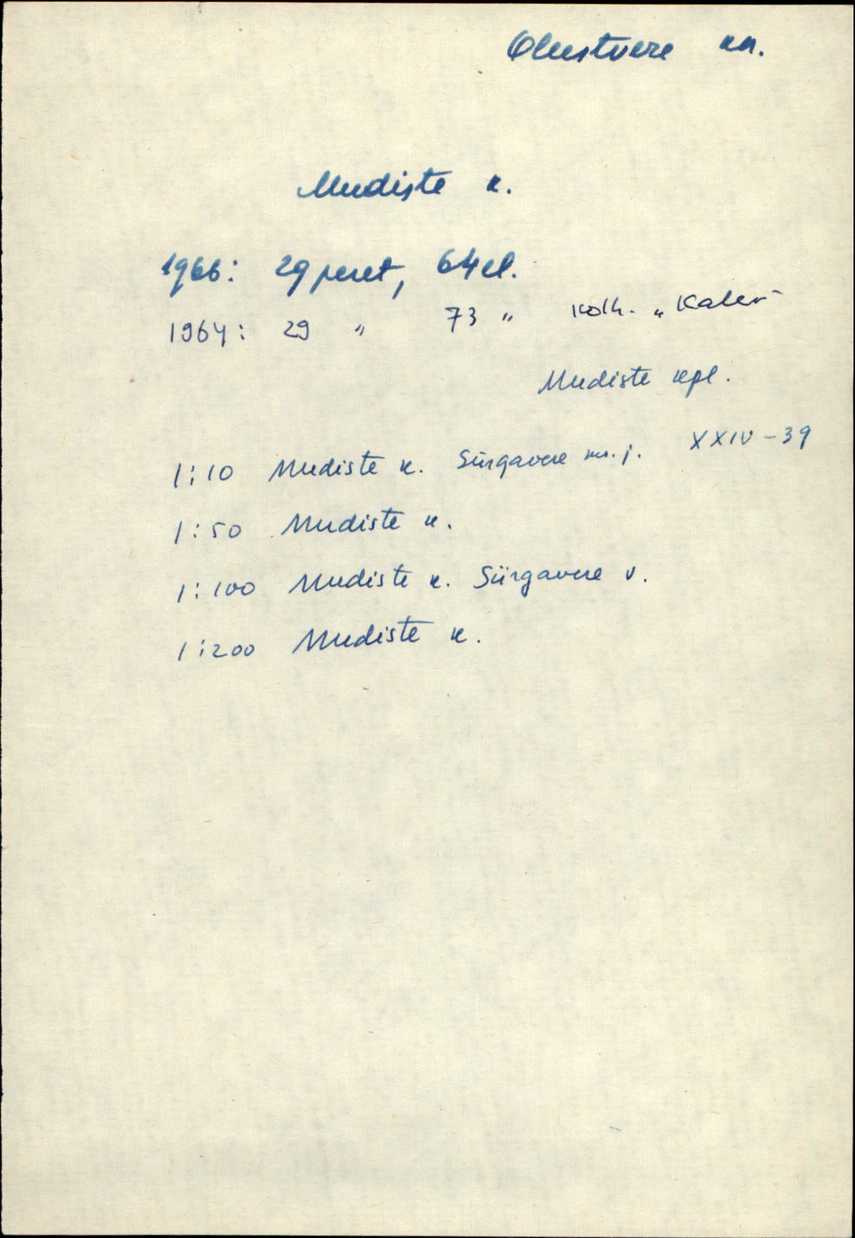 Olustvere kn.
Mudiste k.
1966: 29 peret, 64 el.
1964: 29 " 73 " kolh. „Kalev"
Mudiste kpl.
1:10 Mudiste k. Sürgavere mn. j. XXIV-39
1:50 Mudiste k.
1:100 Mudiste k. Sürgavere v.
1:200 Mudiste k.